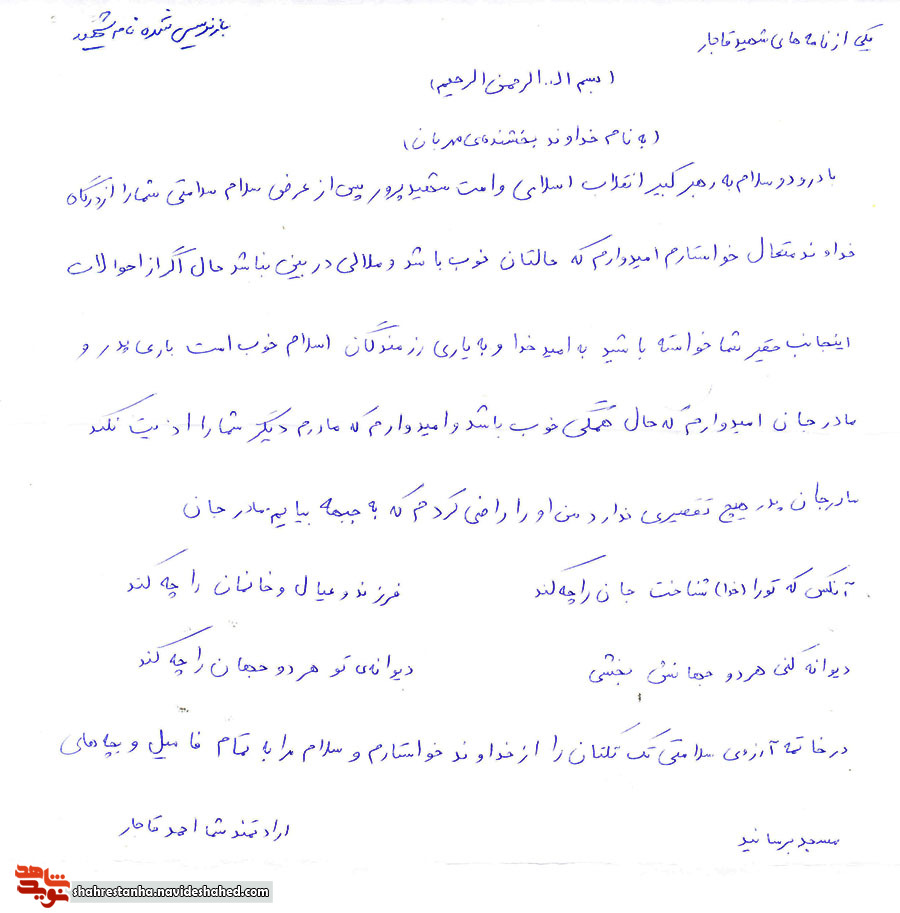 یکی از نامه های شهید قاجار
بازنویسی شده نامه شهید
(بسم الله الرحمن الرحیم)
(به نام خداوند بخشنده‌ی مهربان)
با درود و سلام به رهبر کبیر انقلاب اسلامی و امت شهید پرور پس از عرض سلام سلامتی شما را از درگاه
خداوند متعال خواستارم امیدوارم که حالتان خوب باشد و ملالی در بین نباشد حال اگر از احوالات
اینجانب حقیر شما خواسته باشید به امید خدا و به یاری رزمندگان اسلام خوب است باری پدر و
مادر جان امیدوارم که حال همگی خوب باشد و امیدوارم که مادرم دیگر شما را اذیت نکند
مادرجان پدر هیچ تقصیری ندارد من او را راضی کردم که به جبهه بیایم مادر جان
آنکس که تو را (خدا) شناخت جان را چه کند فرزند و عیال و خانمان را چه کند
دیوانه کنی هر دو جهانش بخشی دیوانه‌ی تو هر دو جهان را چه کند
در خاتمه آرزوی سلامتی تک تکتان را از خداوند خواستارم و سلام مرا به تمام فامیل و بچه های
مسجد برسانید
ارادتمند شما احمد قاجار
نوید شاهد
shahrestanha.navideshahed.com